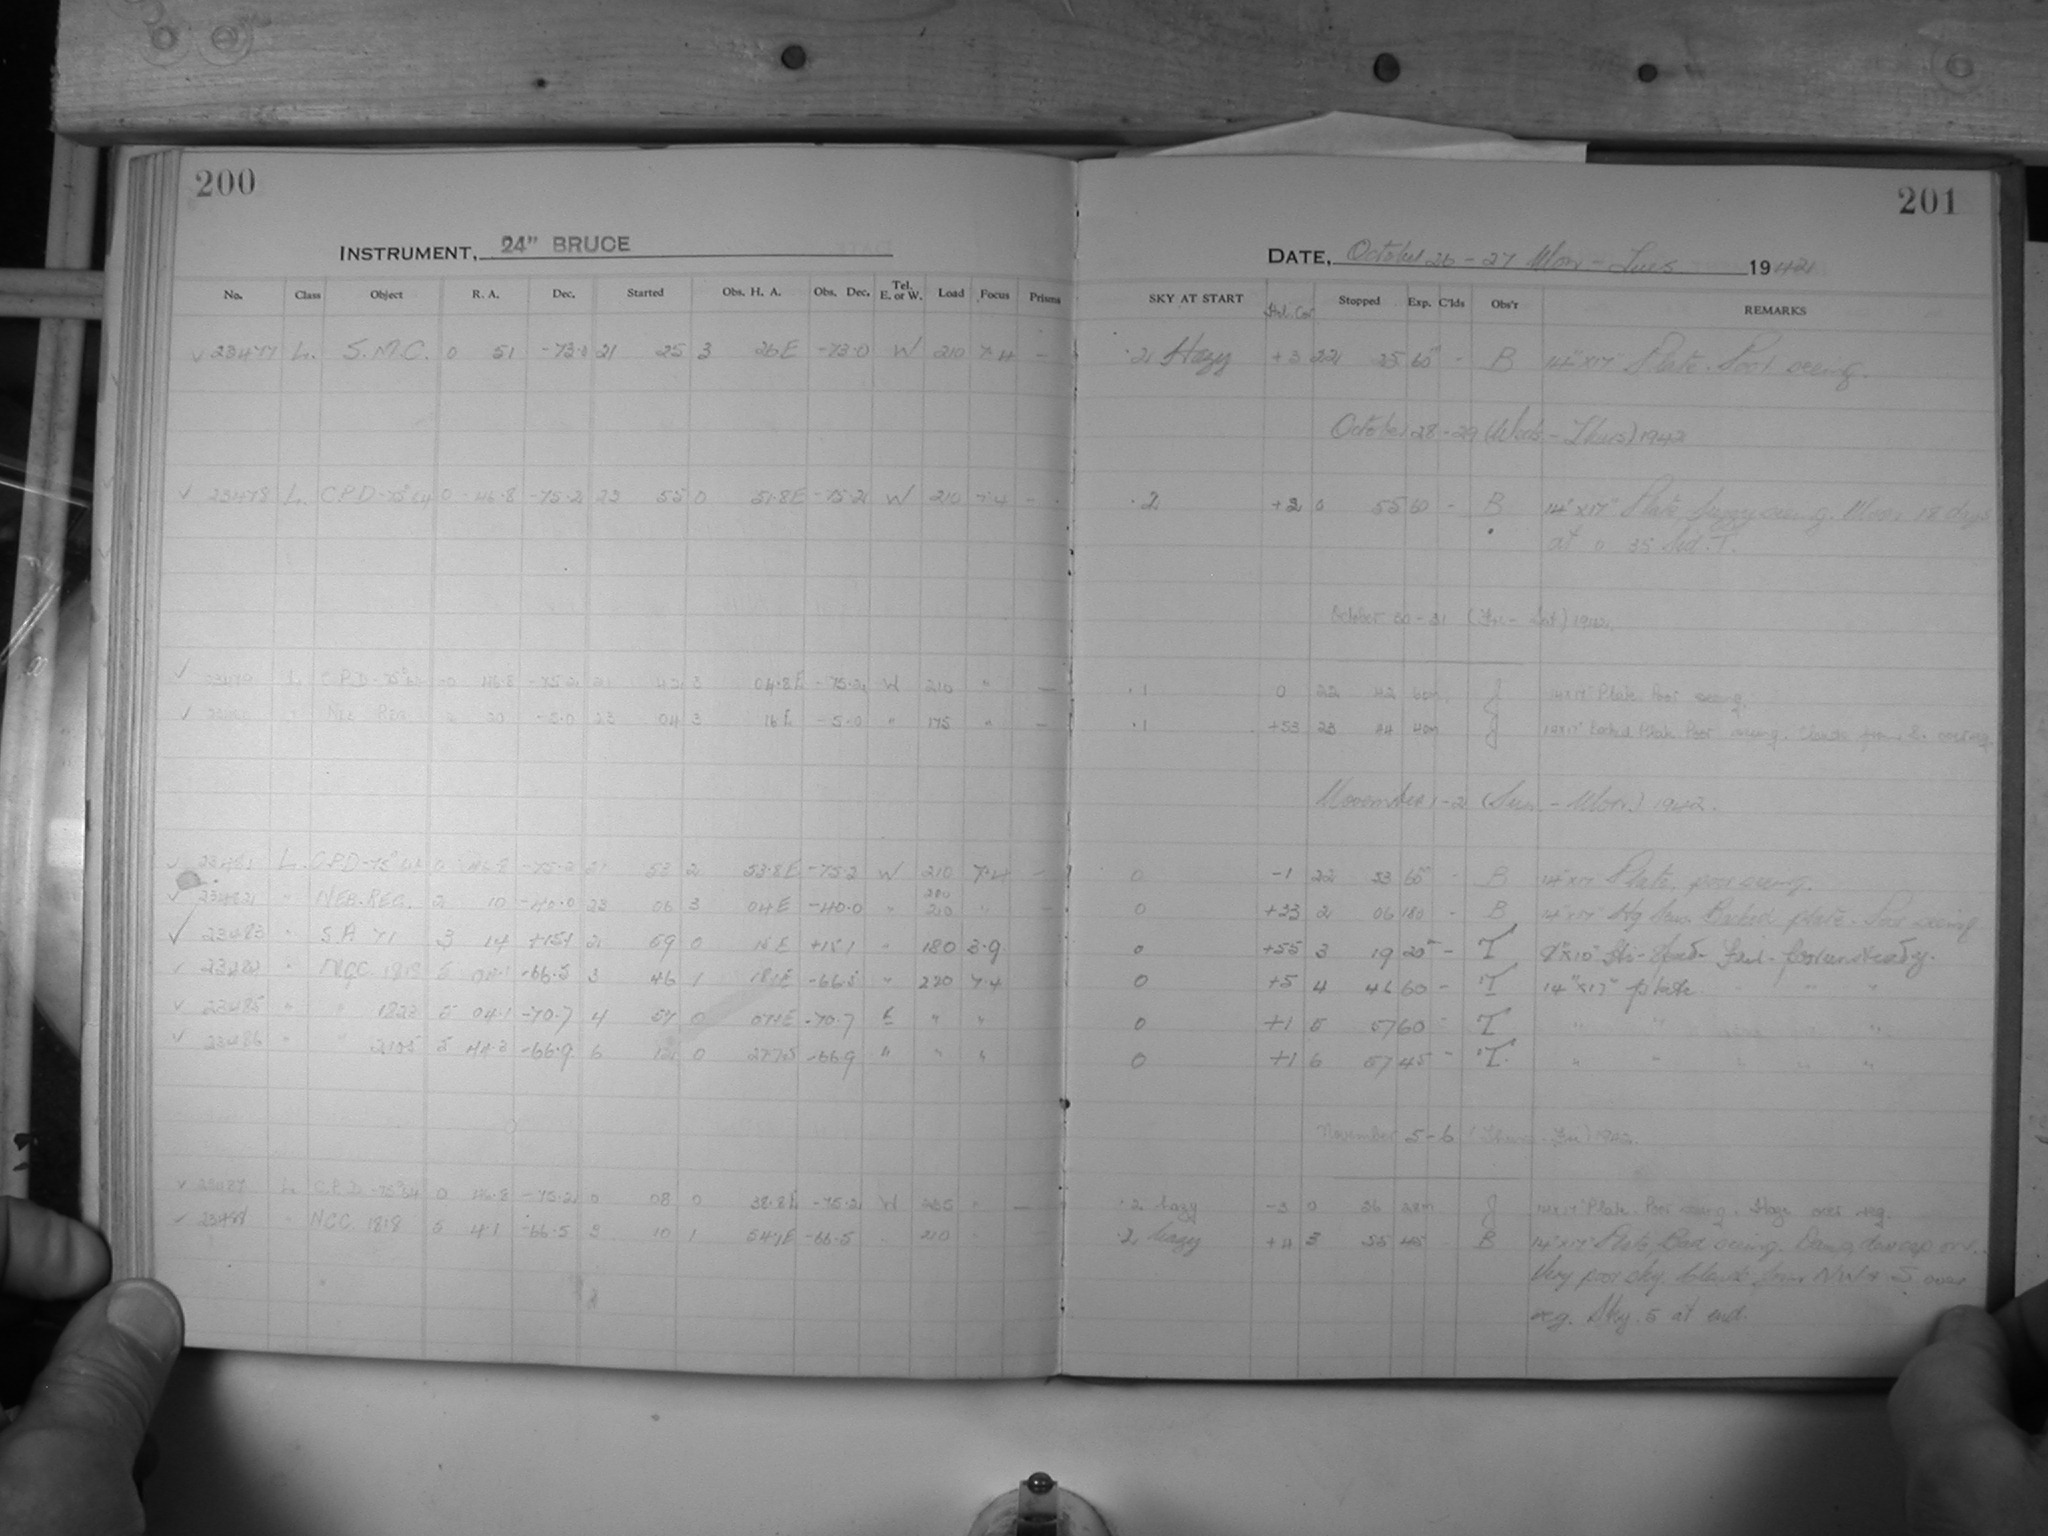 200
INSTRUMENT, 24" BRUCE
No. Class Object R. A. Dec. Started Obs. H. A. Obs. Dec. Tel. E. or W. Load Focus Prisms
✓ 23477 L. S.M.C. 0 51 -73.0 21 25 3 26E -73.0 W 210 7.4 -
✓ 23478 L. C.P.D -75°64 0 46.8 -75.2 23 55 0 51.8E -75.2 W 210 7.4 -
✓ 23479 L. C.P.D -75°64 0 46.8 -75.2 21 42 3 04.8E -75.2 W 210 " -
✓ 23480 " Neb. Reg. 2 20 -5.0 23 04 3 16E -5.0 " 175 " -
✓ 23481 L. C.P.D -75°64 0 46.8 -75.2 21 53 2 53.8E -75.2 W 210 7.4 -
✓ 23482 " NEB. REG. 2 10 -40.0 23 06 3 04E -40.0 " 210 " -
✓ 23483 " S.A 71 3 14 +15.1 2 59 0 15E +15.1 " 180 3.9
✓ 23484 " NGC 1818 5 04.1 -66.5 3 46 1 18.1E -66.5 " 220 7.4
✓ 23485 " " 1823 5 04.1 -70.7 4 57 0 07.1E -70.7 E " "
✓ 23486 " " 2105 5 44.3 -66.9 6 12 0 -66.9 " " "
✓ 23487 L. C.P.D -75°64 0 46.8 -75.2 0 08 0 38.8E -75.2 W 235 " -
✓ 23488 " NGC 1818 5 4.1 -66.5 3 10 1 54.1E -66.5 " 210
201
DATE, October 26 - 27 Mon. - Tues 1942
SKY AT START Std. Cor Stopped Exp. C'lds Obs'r REMARKS
.2 Hazy +3 22 25 60 - B 14"x17" Plate. Poor seeing.
October 28 - 29 (Weds - Thurs) 1942
.2 +2 0 55 60 - B 14"x17" Plate fuzzy seeing. Moon 18 days
at 0 35 Sid. T.
October 30 - 31 (Fri - Sat) 1942.
.1 0 22 42 60m J 14x17" Plate. Poor seeing.
.1 +53 23 44 40m J 14x17" Backed Plate Poor seeing. Clouds from S. over reg.
November 1 - 2 (Sun. - Mon.) 1942.
0 -1 22 53 60 - B 14"x17" Plate, poor seeing.
0 +23 2 06 180 - B 14"x17" Hg Sens. Backed plate - Poor seeing
0 +55 3 19 20 - T 8"x10" poor unsteady.
0 +5 4 46 60 - T 14"x17" plate " "
0 +1 5 57 60 - T " " " "
0 +1 6 57 45 - T. " " " " "
November 5 - 6 (Thurs - Fri) 1942.
.2 hazy -3 0 36 28m J 14x17" Plate. Poor seeing. Haze over reg.
.2 hazy +11 3 55 45 - B 14"x17" Plate, Bad seeing.
Very poor sky, clouds from NW & S over
reg. Sky .5 at end.